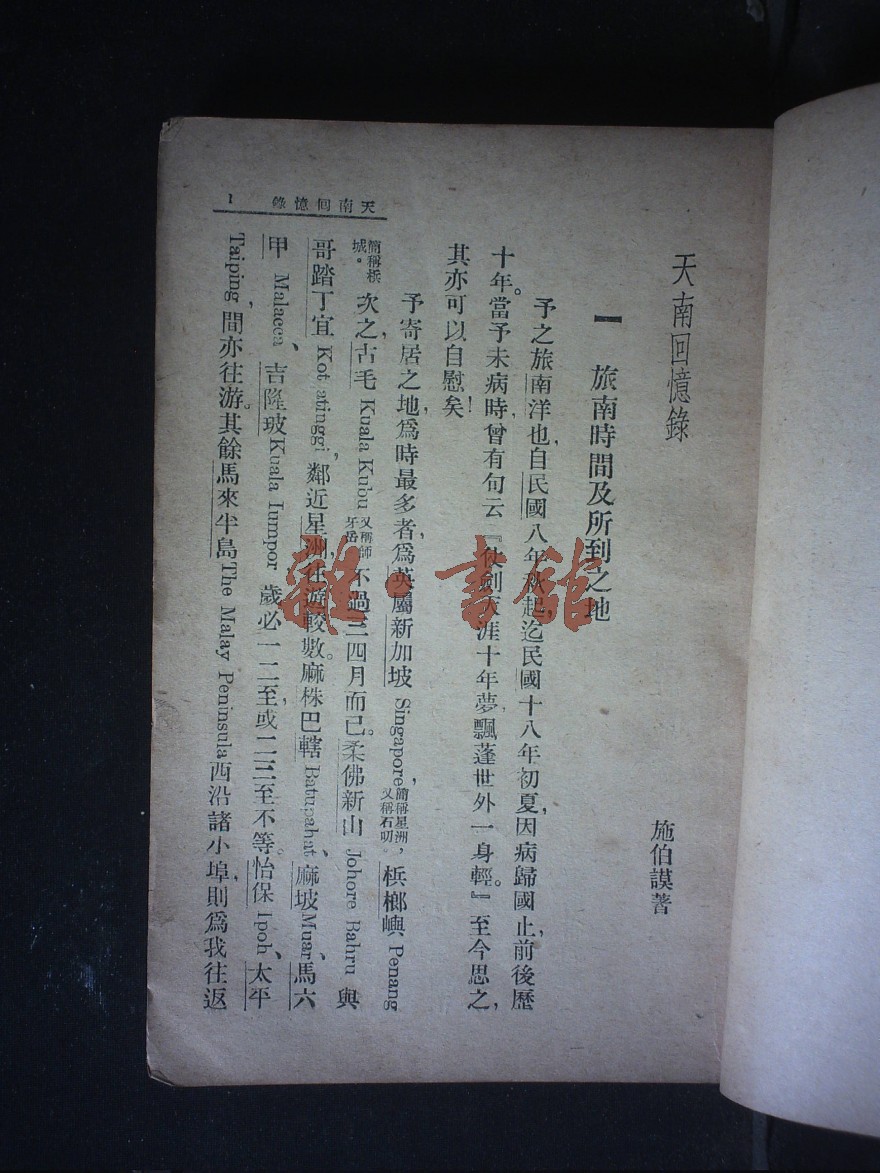 天南回憶錄
施伯謨著
一 旅南時間及所到之地
予之旅南洋也,自民國八年秋起,迄民國十八年初夏,因病歸國止,前後歷
十年。當予未病時,曾有句云『仗劍天涯十年夢,飄蓬世外一身輕。』至今思之,
其亦可以自慰矣!
予寄居之地,爲時最多者,爲英屬新加坡 Singapore,簡稱星洲,又稱石叻。梹榔嶼 Penang
簡稱梹城。次之,古毛 Kuala Kubu 又稱師牙岳 不過三四月而已。柔佛新山 Johore Bahru 與
哥踏丁宜 Kot atinggi,鄰近星洲,往遊較數。麻株巴轄 Batupahat、麻坡 Muar、馬六
甲 Malacca、吉隆玻 Kuala Lumpor 歲必一二至,或二三至不等。怡保 Ipoh、太平
Taiping,間亦往游。其餘馬來半島 The Malay Peninsula 西沿諸小埠,則爲我往返
天南回憶錄 1
雜·書館